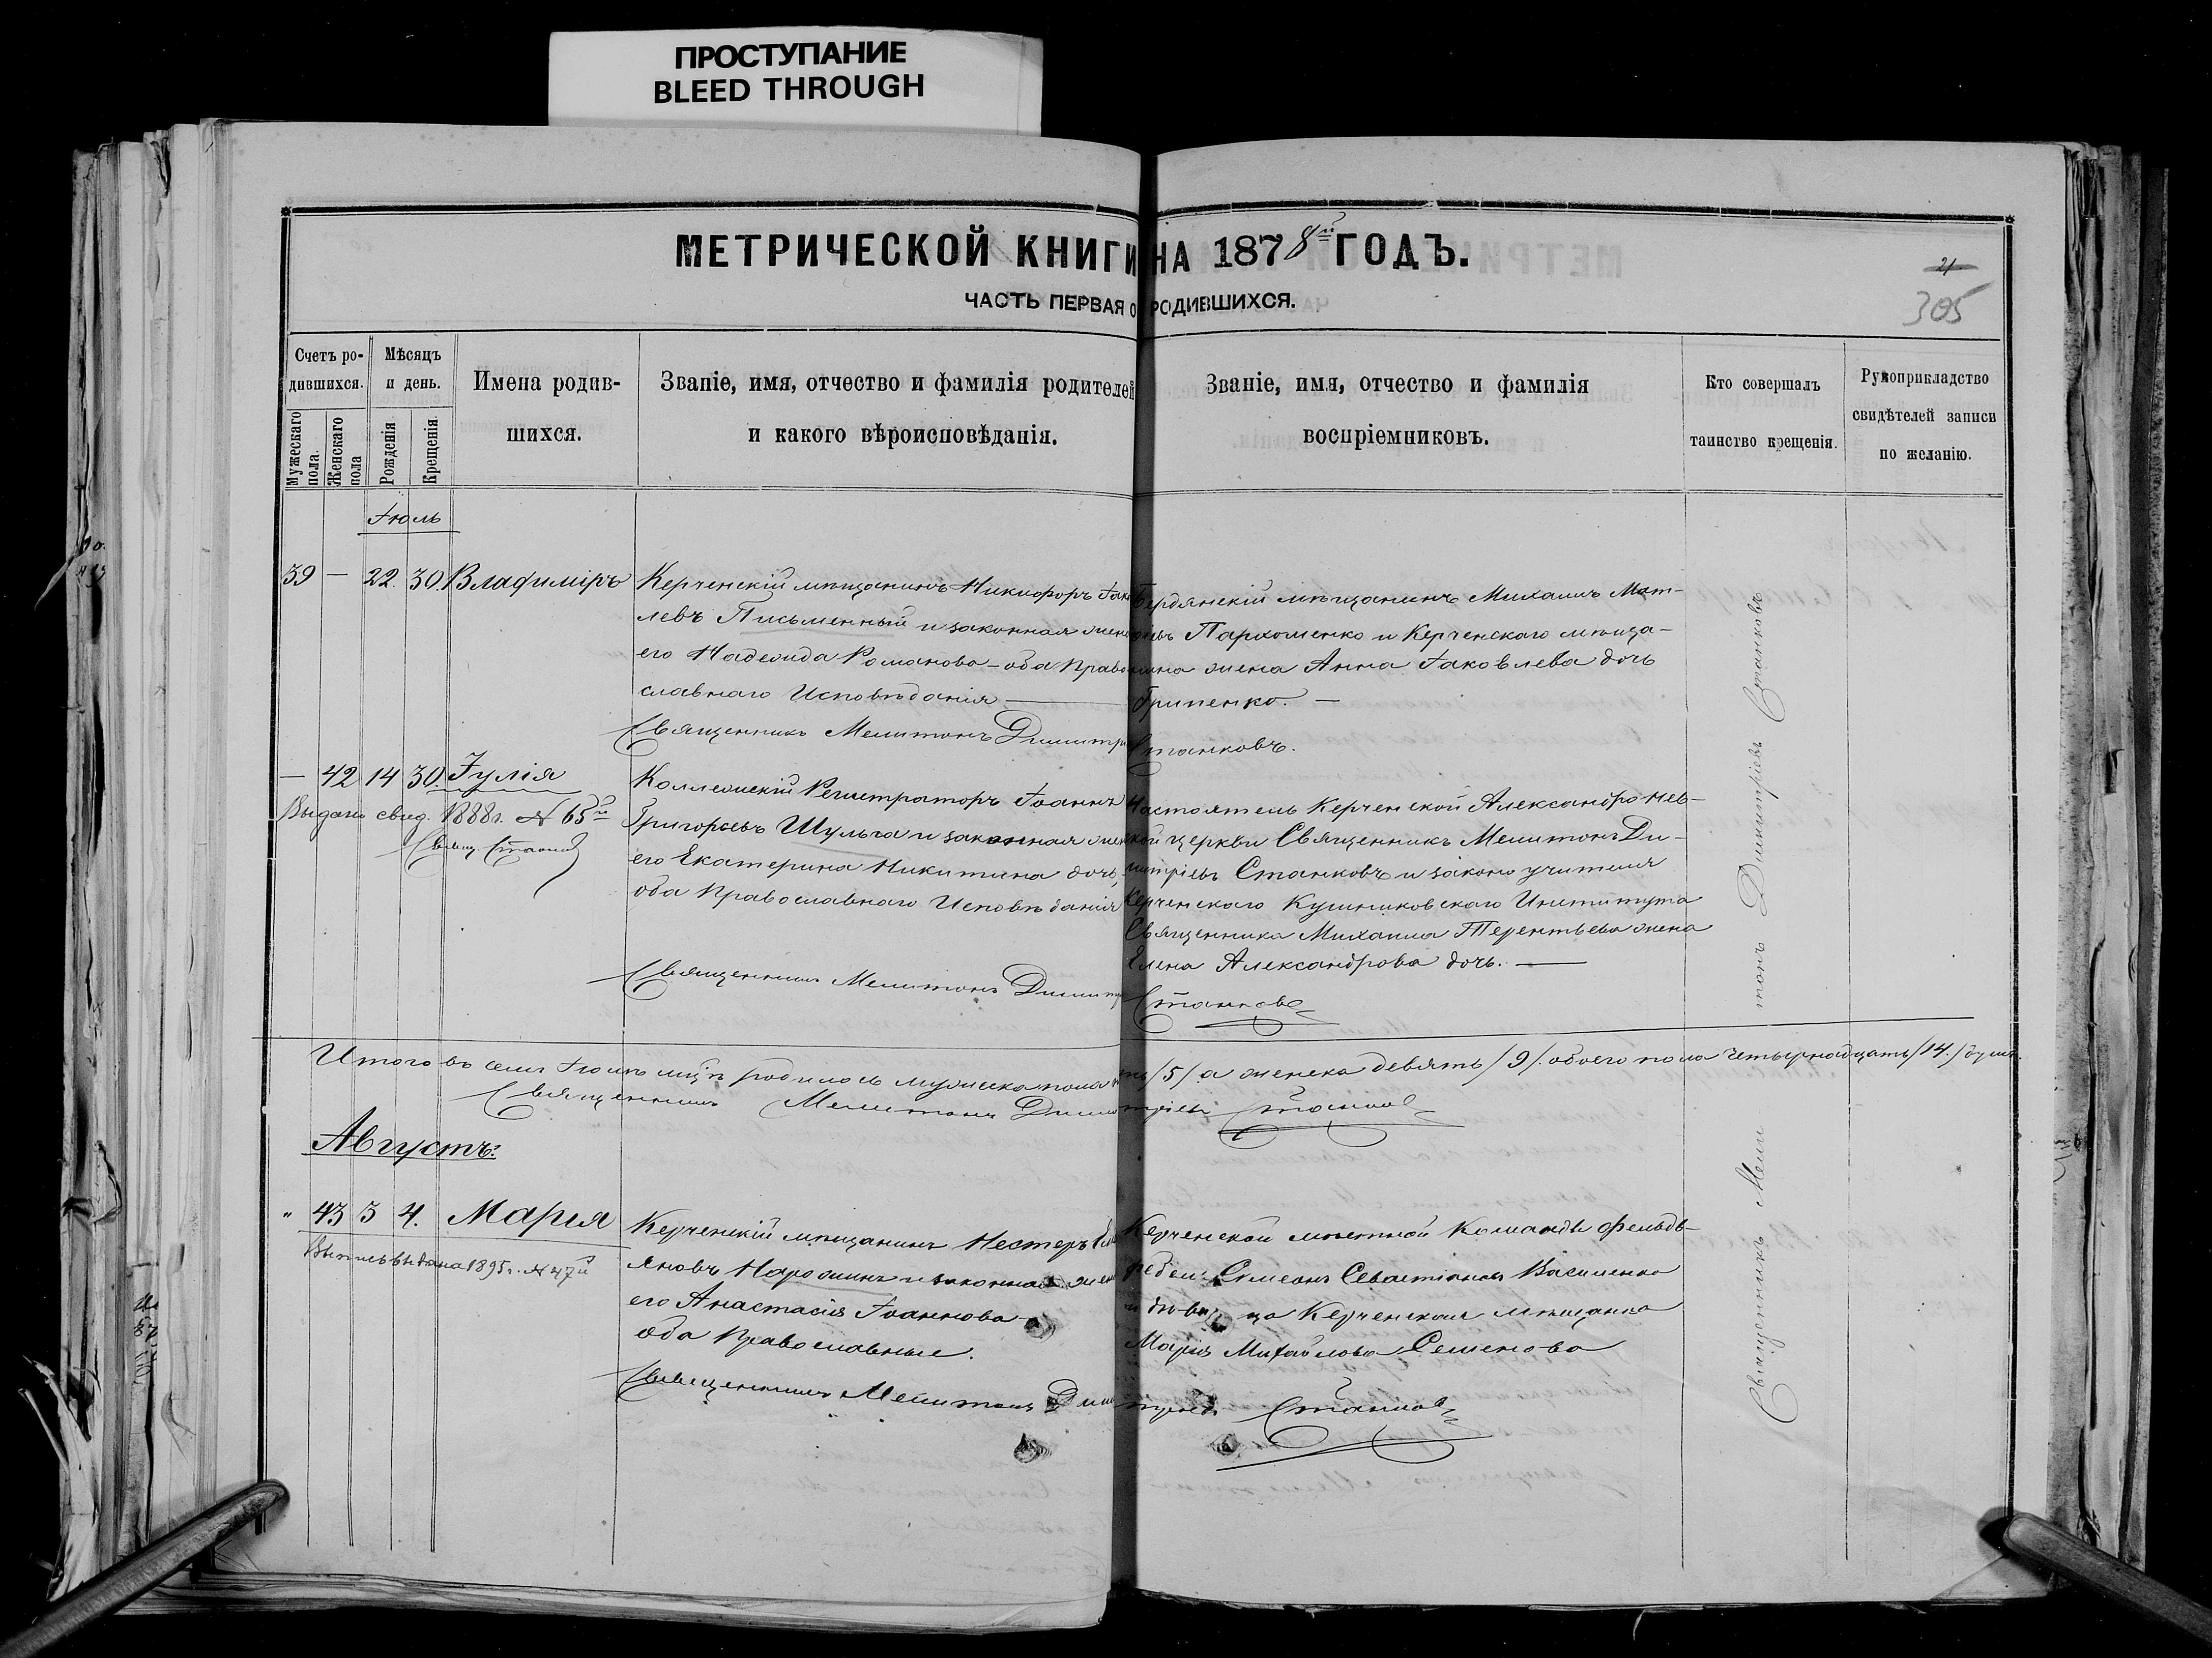 ПРОСТУПАНИЕ
BLEED THROUGH
МЕТРИЧЕСКОЙ КНИГИ НА 1878й ГОДЪ.
ЧАСТЬ ПЕРВАЯ О РОДИВШИХСЯ.
21
305
Счетъ родившихся.
Мужескаго пола.
Женскаго пола
Мѣсяцъ и день.
Рожденія
Крещенія.
Имена родившихся.
Званіе, имя, отчество и фамилія родителей
и какого вѣроисповѣданія.
Званіе, имя, отчество и фамилія
воспріемниковъ.
Кто совершалъ
таинство крещенія.
Рукоприкладство
свидѣтелей записи
по желанію.
Іюль
39 — 22. 30. Владиміръ
Керченскій мѣщанинъ Никифоръ Іаковлевъ
Письменный и законная жена
его Надежда Романова - оба Православнаго
Исповѣданія —
Бердянскій мѣщанинъ Михаилъ Мат-
ѳіевъ Пархоменко и Керченскаго мѣща-
нина жена Анна Іаковлева дочь
Гриненко. —
Священникъ Мелитонъ Димитріевъ Станковъ.
— 42 14 30. Іулія
Выдано свид. 1888 г. № 65й
Свящ. Станков
Коллежскій Регистраторъ Іоаннъ
Григорьевъ Шульга и законная жена
его Екатерина Никитина дочь,
оба Православнаго Исповѣданія
Настоятель Керченской Александро-Нев-
ской церкви Священникъ Мелитонъ Ди-
митріевъ Станковъ и законоучителя
Керченскаго Кушниковскаго Института
Священника Михаила Терентьева жена
Елена Александрова дочь. —
Священникъ Мелитонъ Димитр Станковъ
Итого въ семъ Іюлѣ мцѣ родилось мужеска пола пять /5/ а женска девять /9/. обоего пола четырнадцать /14./ душъ.
Священникъ Мелитонъ Димитріевъ Станковъ
Августъ:
" 43 3 4. Марія
Выпись выдана 1895 г. № 47й
Керченскій мѣщанинъ Нестеръ
яновъ и законная жена
его Анастасія Іоаннова -
оба Православные.
Керченской мѣстной Команды фельд-
фебель Симеонъ Севастіановъ Василенко
и вдова Керченская мѣщанка
Марія Михайлова Семенова
Священникъ Мелитонъ Димитріевъ Станковъ
Священникъ Мелитонъ Димитріевъ Станковъ